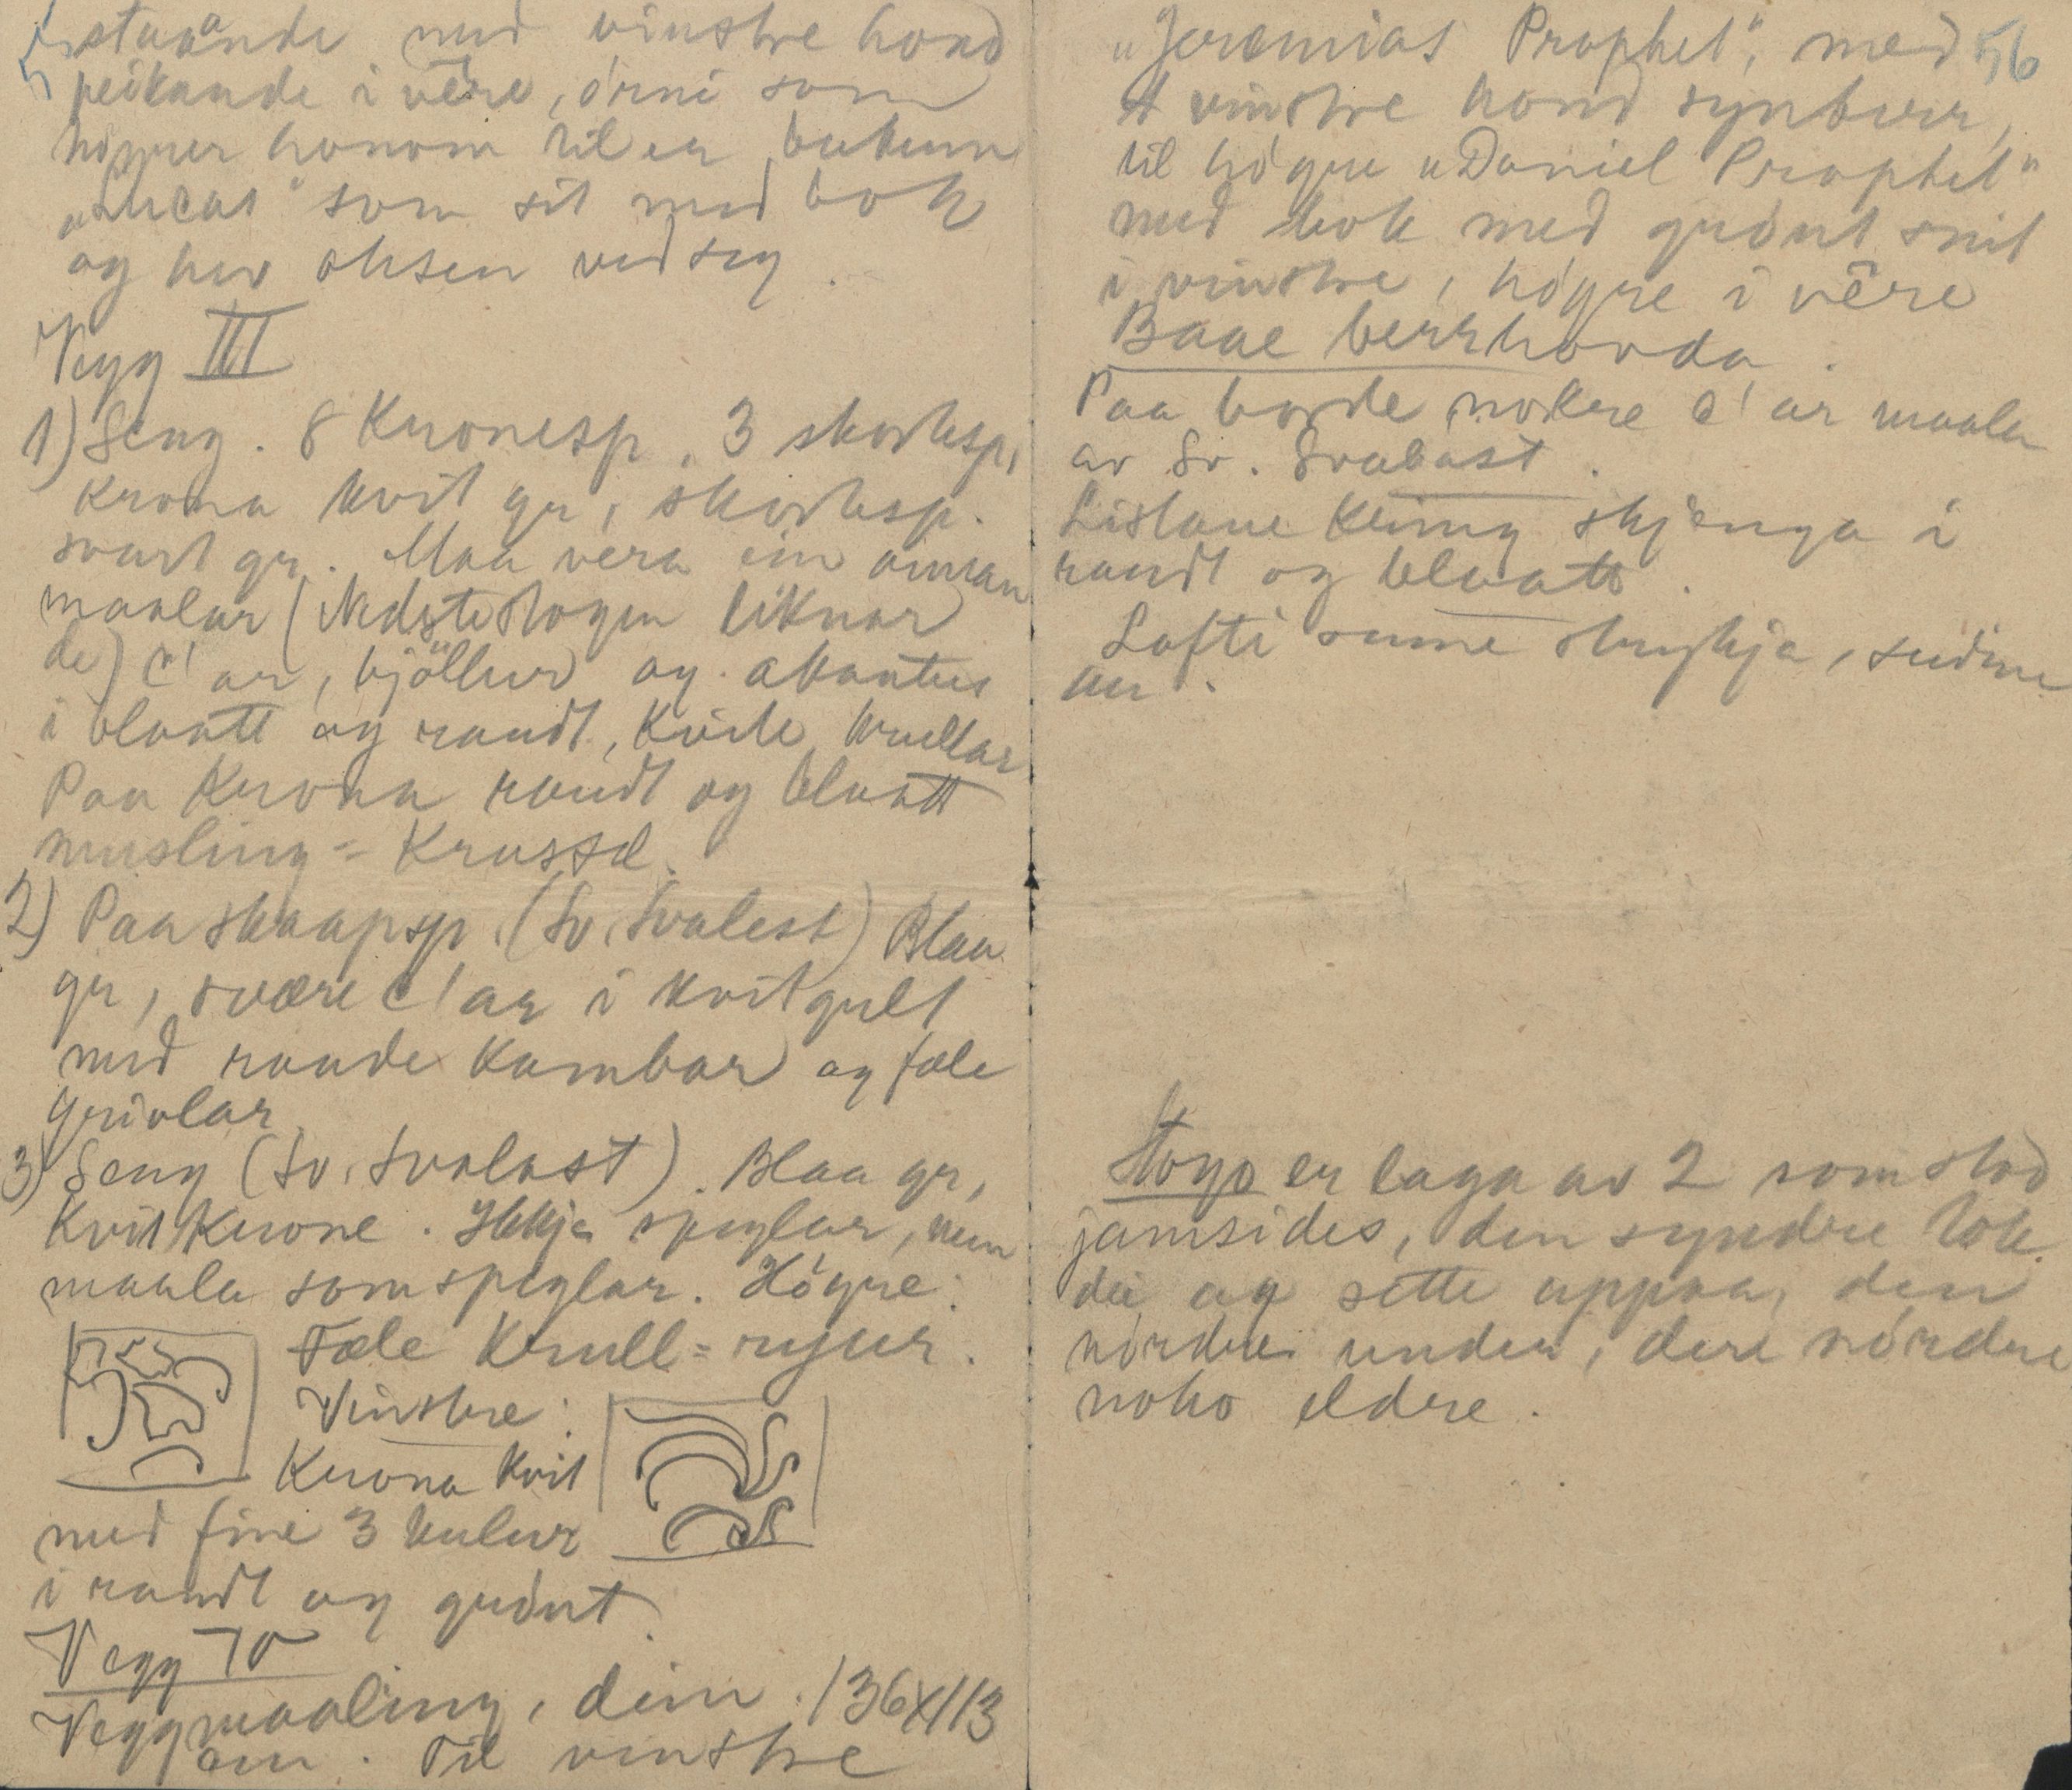 55
staaande med vinstre hond
peikande i vêre, örni som
högrer honom til er bukunn
„Lucas" som sit med bok
og hev oksen ved seg.
Vegg III
1) Seng. 8 Kronesp, 3 skorksp,
Krona kvit gr, skorksp.
svart gr. Maa vera ein annan
maalar (Nedste stogen liknar
de) C'ar, bjöllur og akantus
i blaatt og raudt, kvite krullar
Paa Krona raudt og blaatt
musling = Krussel.
2) Paa skaapsp. (Sv. Svalest) Blaa
gr, svære C'ar i kvitgult
med raude Kambar og fæle
grivlar
3) Seng (Sv. Svalast). Blaa gr,
kvit krone. Ikkje speglar, men
maala som speglar. Högre:
Fæle Krull = rysur.
Vinstre:
Krona kvit
med fine 3 kulur
i raudt og grönt.
Vegg IV
Veggmaaling, dim. 136x113
cm. Til vinstre
56
„Jeremias Prophet", med
vinstre hond synberr,
til högre „Daniel Prophet"
med bok med grönt snit
i vinstre, högre i vêre
Baae berrhovda.
Paa borde nokre C'ar maala
av Sv. Svalast.
Listane kring skjenga i
raudt og blaatt.
Lofti sume strykja, sudme
Stogo er laga av 2 som stod
jamsides, den syndre tok
dei og sette uppaa, den
nördre under, dere nördre
noko eldre.